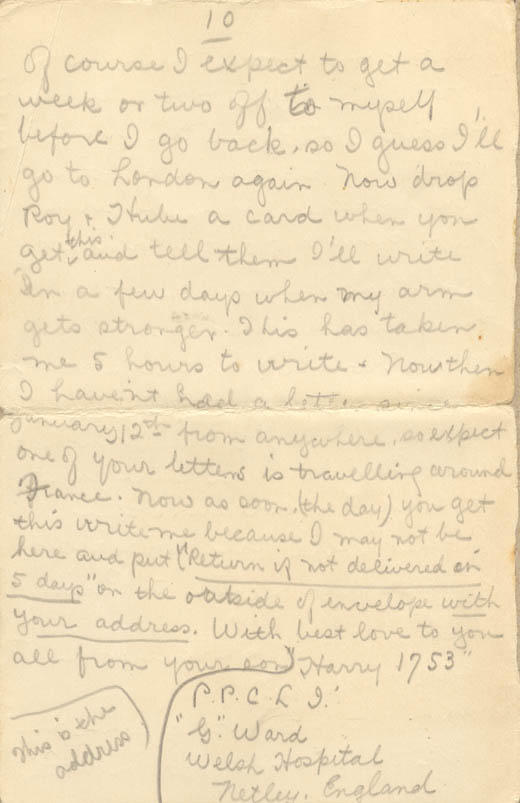 10
of course I expect to get a
week or two off to myself
before I go back, so I guess I'll
go to London again Now drop
Roy + Hube a card when you
get this and tell them I'll write
in a few days when my arm
gets stronger. This has taken
me 5 hours to write + Now then
I havent had a letter since
January 12th from anywhere, so expect
one of your letters is travelling around
France. Now as soon (the day) you get
this write me because I may not be
here and put "Return if not delivered in
5 days" on the outside of envelope with
your address. With best love to you
all from your son "Harry 1753"
P.P.C L I.
"G" Ward
Welsh Hospital
Netley. England
This is the
address